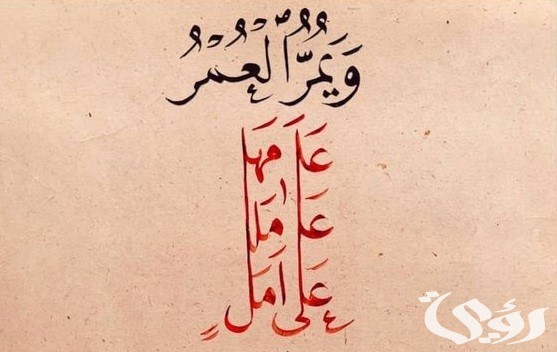 وَيَمُرُّ الْعُمْرُ
عَلَى مَهَل
عَلَى امَل
عَلَى اَمَلٍ
رؤية